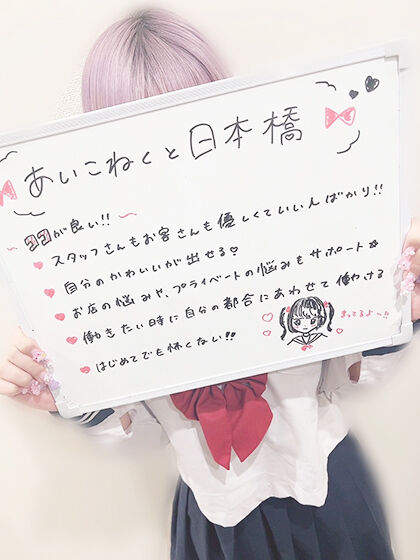 あいこねくと日本橋
ココが良い!!
スタッフさんもお客さんも優しくていい人ばかり!!
自分のかわいいが出せる♡
お店の悩みや、プライベートの悩みもサポート☆
働きたい時に自分の都合にあわせて働ける
はじめてでも怖くない!!
まってるよー!!